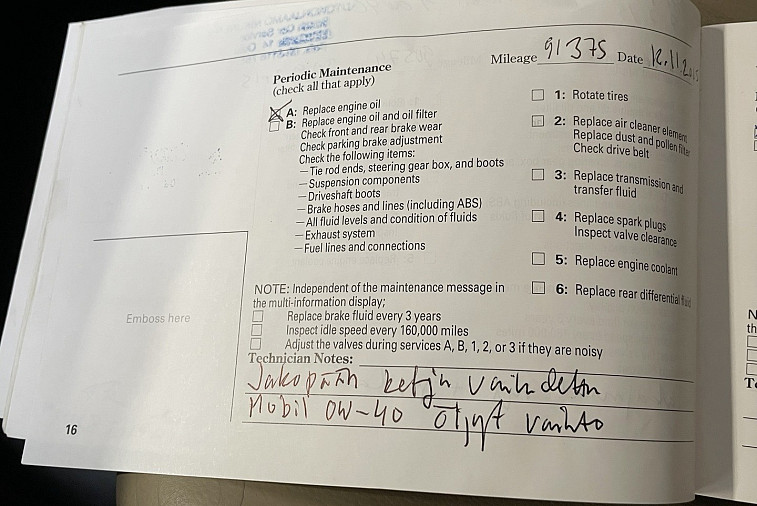 Mileage 91375 Date
Periodic Maintenance
(check all that apply)
A: Replace engine oil
B: Replace engine oil and oil filter
Check front and rear brake wear
Check parking brake adjustment
Check the following items:
—Tie rod ends, steering gear box, and boots
—Suspension components
—Driveshaft boots
—Brake hoses and lines (including ABS)
—All fluid levels and condition of fluids
—Exhaust system
—Fuel lines and connections
1: Rotate tires
2: Replace air cleaner element
Replace dust and pollen filter
Check drive belt
3: Replace transmission and
transfer fluid
4: Replace spark plugs
Inspect valve clearance
5: Replace engine coolant
6: Replace rear differential fluid
NOTE: Independent of the maintenance message in
the multi-information display;
Replace brake fluid every 3 years
Inspect idle speed every 160,000 miles
Adjust the valves during services A, B, 1, 2, or 3 if they are noisy
Technician Notes:
Jakopään ketju vaihdettu
Mobil 0W-40 öljyt vaihto
Emboss here
16